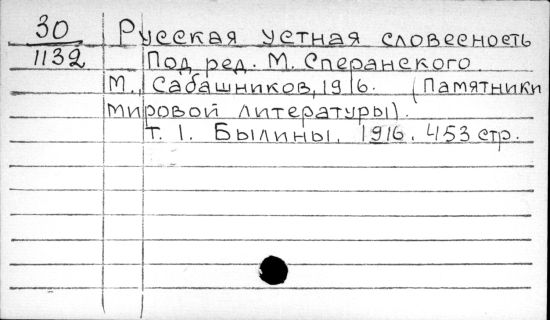 30 Русская устная словесность
1132 Под ред. М. Сперанского.
М., Сабашников, 1916. (Памятники
мировой литературы).
т. 1. Былины. 1916. 453 стр.